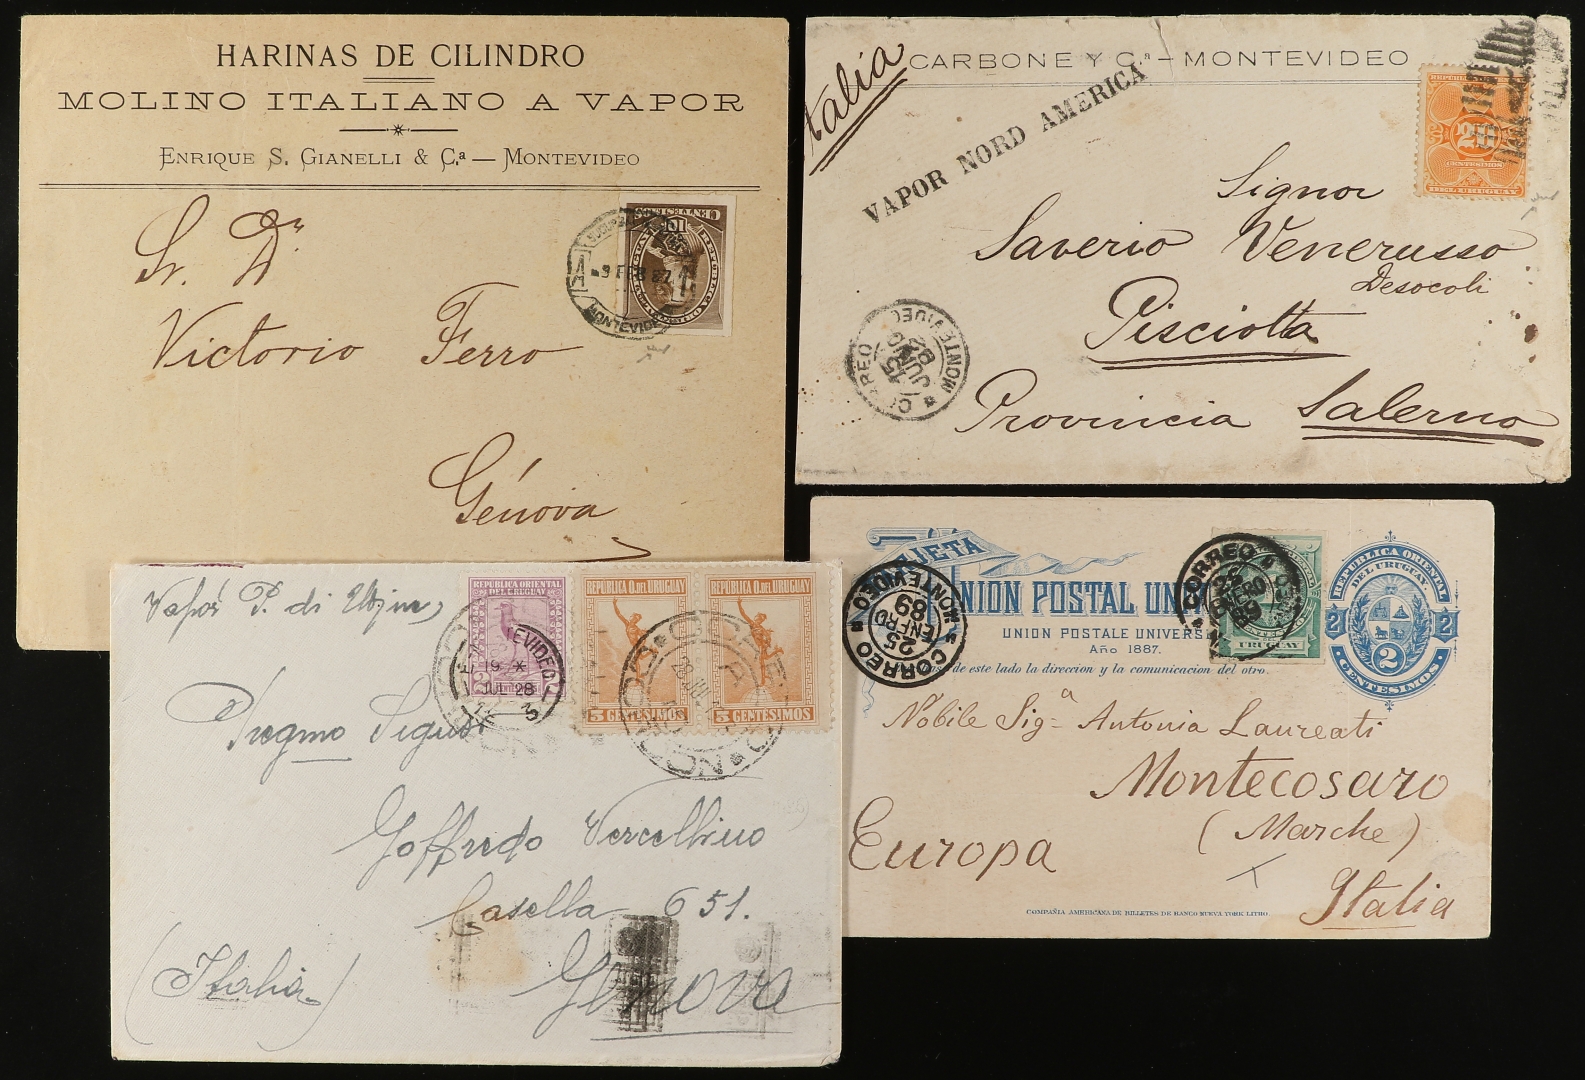 HARINAS DE CILINDRO
MOLINO ITALIANO A VAPOR
ENRIQUE S. GIANELLI & Cª — MONTEVIDEO
MONTEVIDEO
Sr. Dn
Victorio Ferro
Génova
Italia
CARBONE Y Cª - MONTEVIDEO
VAPOR NORD AMERICA
20
CENTESIMOS
DEL URUGUAY
Signor
Saverio Venerusso
Desocoli
Pisciotta
Provincia Salerno
CORREO
15
JUN
92
MONTEVIDEO
Vapor P. di Udine
REPUBLICA ORIENTAL
DEL URUGUAY
REPUBLICA O. DEL URUGUAY
REPUBLICA O. DEL URUGUAY
5 CENTESIMOS
5 CENTESIMOS
19
JUL 28
Pregmo Signor
Goffredo Vercellino
Casella 651.
(Italia)
Genova
UNION POSTAL
UNION POSTALE UNIVERS
Año 1887.
de este lado la direccion y la comunicacion del otro.
REPUBLICA ORIENTAL
DEL URUGUAY
2 2
2
CENTESIMOS
CORREO
URUGUAY
MONTEVIDEO
25
ENERO
89
CORREO
Nobile Sigª Antonia Laureati
Montecosaro
(Marche)
Europa
Italia
COMPAÑIA AMERICANA DE BILLETES DE BANCO NUEVA YORK LITHO.